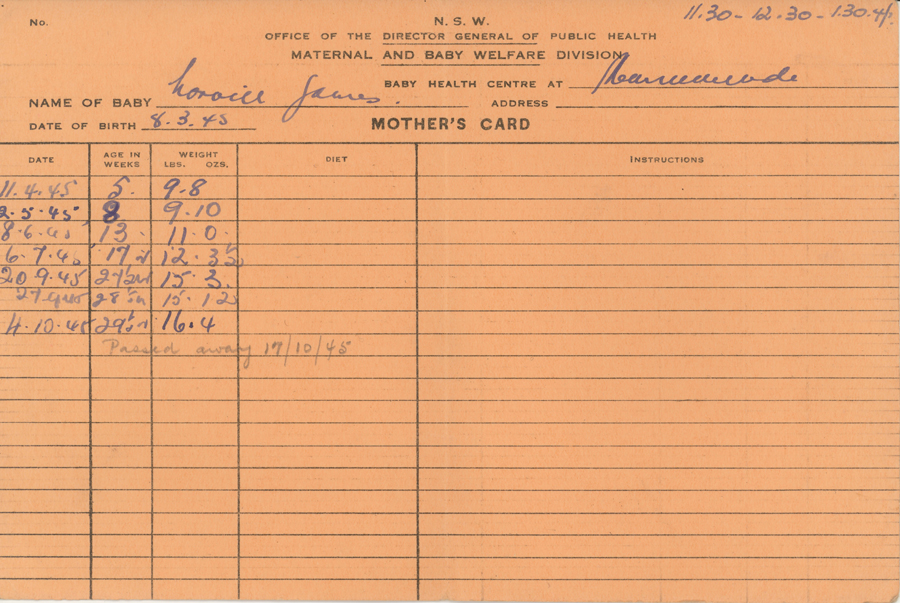 No.
11.30 - 12.30 - 1.30.
N. S. W.
OFFICE OF THE DIRECTOR GENERAL OF PUBLIC HEALTH
MATERNAL AND BABY WELFARE DIVISION
BABY HEALTH CENTRE AT
NAME OF BABY James. ADDRESS
DATE OF BIRTH 8.3.45 MOTHER'S CARD
DATE AGE IN WEEKS WEIGHT LBS. OZS. DIET INSTRUCTIONS
11.4.45 5. 9.8
2.5.45 8 9.10
8.6.45 13 11.0.
6.7.45 17 12.3½
20.9.45 27½ 15.3.
27.9.45 28½ 15.12
4.10.45 29½ 16.4
Passed away 17/10/45